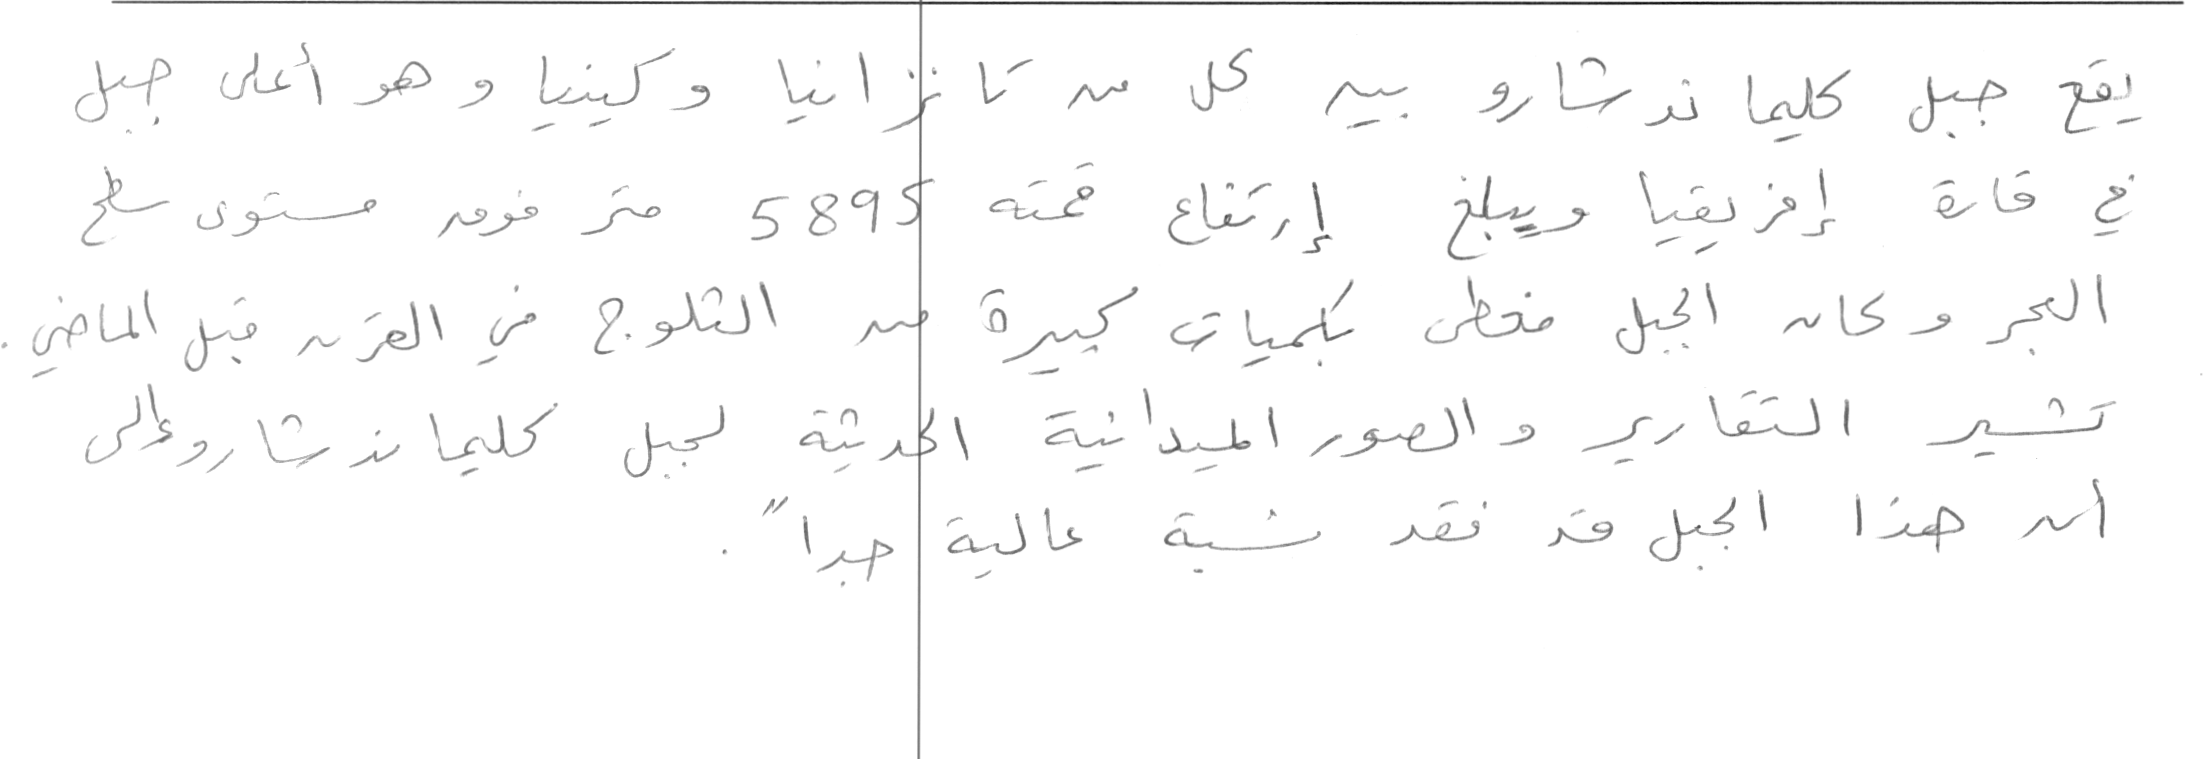 يقع جبل كليماندشارو بين كل من تانزانيا وكينيا وهو أعلى جبل
في قارة إفريقيا ويبلغ إرتفاع قمته 5895 متر فوق مستوى سطح
البحر وكان الجبل مغطى بكميات كبيرة من الثلوج في القرن قبل الماضي.
تشير التقارير والصور الميدانية الحديثة لجبل كليماندشارو إلى
أن هذا الجبل قد فقد نسبة عالية جداً.